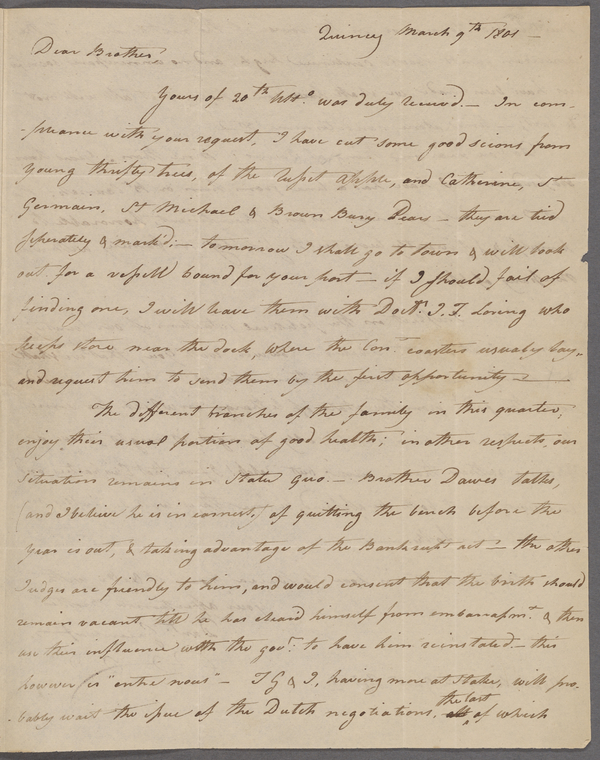 Quincy March 9th 1801 —
Dear Brother
Yours of 20th ulto. was duly receivd. — In com-
-pliance with your request, I have cut some good scions from
young thrifty trees, of the russet apple, and Catherine, St
Germain, St Michael & Brown Bury Pears — they are tied
seperately & markd. — tomorrow I shall go to town & will look
out for a vessell bound for your port — if I should fail of
finding one, I will leave them with Doctr. J. F. Loring who
keeps store near the dock, where the Conn. coasters usualy lay,
and request him to send them by the first opportunity —
The different branches of the family in this quarter,
enjoy their usual portion of good health; in other respects our
situation remains in Statu quo. — Brother Dawes talks,
(and I believe he is in earnest,) of quitting the bench before the
year is out, & taking advantage of the Bankrupt act — the other
Judges are friendly to him, and would consent that the birth should
remain vacant till he has cleard himself from embarrassmt. & then
use their influence with the govr. to have him reinstated. — this
however is "entre nous" — T G & I, having more at stake, will pro-
-bably wait the issue of the Dutch negotiations, the last of which